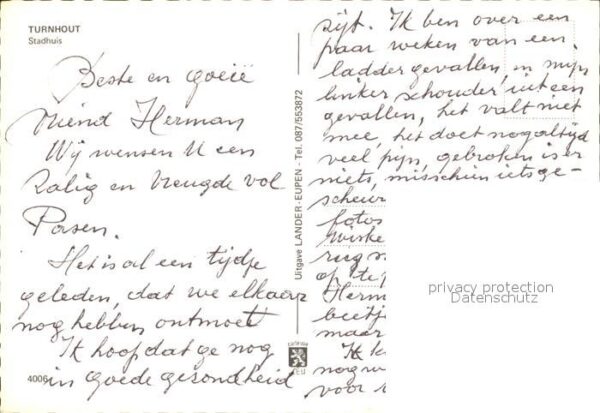 TURNHOUT
Stadhuis
Beste en goeië
vriend Herman
Wij wensen U een
Zalig en Vreugde vol
Pasen.
Het is al een tijdje
geleden, dat we elkaar
nog hebben ontmoet
Ik hoop dat ge nog
in goede gezondheid
4006
Uitgave LANDER-EUPEN - Tel. 087/553872
zijt. Ik ben over een
paar weken van een
ladder gevallen, en mijn
linker schouder uit een
gevallen, het valt niet
mee, het doet nog altijd
veel pijn, gebroken is er
niets, misschien iets ge-
scheur
fotos
Wiske
rug n
op te
Herm
beetj
maar
Ik k
nog w
voor
privacy protection
Datenschutz